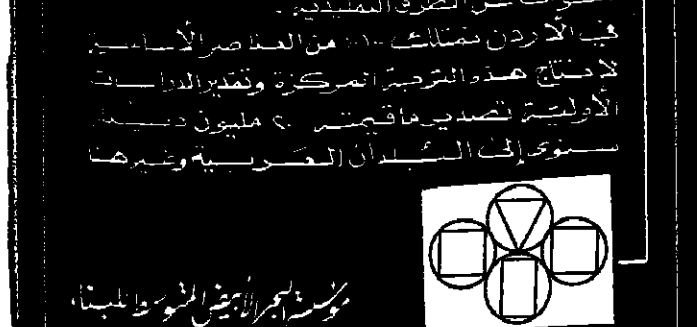 عن الطرق التقليدية.
في الأردن نمتلك ١٠٠٪ من العناصر الأساسية
لانتاج هذه التربة المركزة وتقدير الدراسات
الأولية تصدير ما قيمته ٢٠ مليون
سنوي إلى البلدان العربية وغيرها
مؤسسة البحر الأبيض المتوسط للبناء